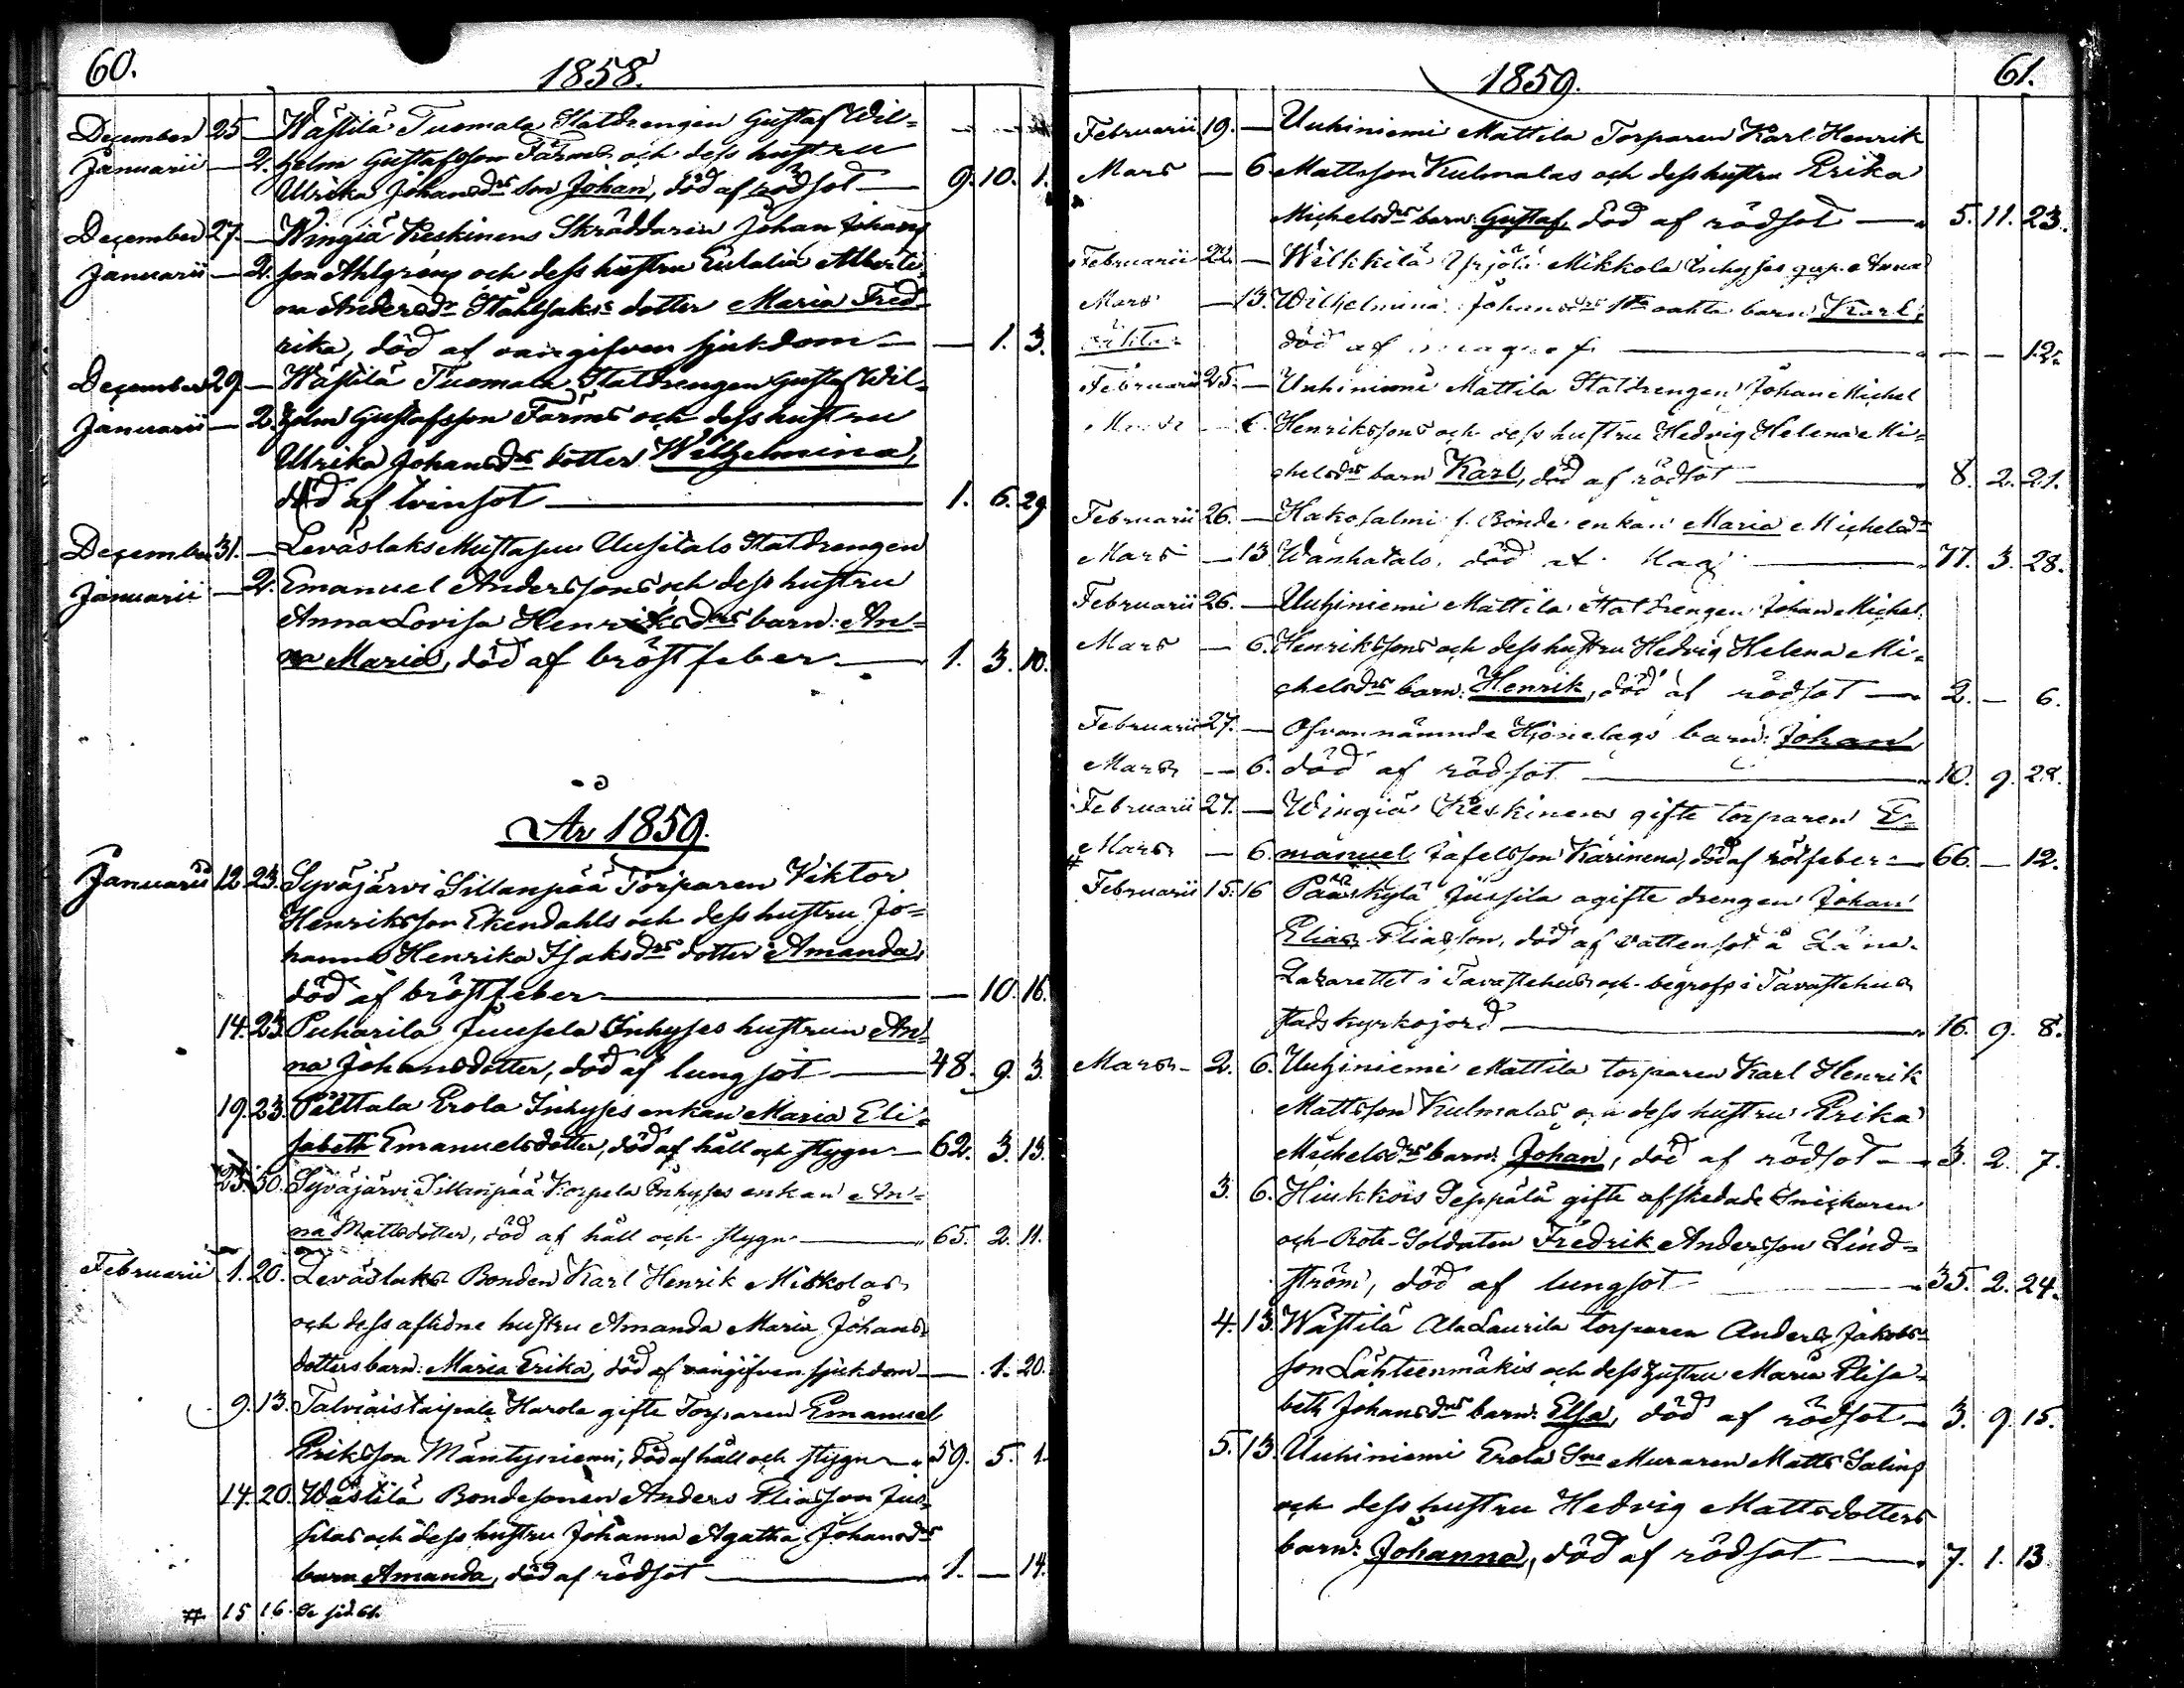 60.
1858.
December 25 — Wästilä Tuomala Statdrengen Gustaf Wil=
Januarii — 2. helm Gustafsson Farms och dess hustru
Ulrika Johansdrs son Johan, död af rödsot — 9. 10. 1.
December 27. — Wingiä Keskinens Skräddaren Johan Johans
Januarii — 2. son Ahlgréns och dess hustru Eulalia Alberti
na Andersdr Ståhlsaks dotter Maria Fred=
rika, död af oangifven sjukdom — — 1. 3.
December 29. — Wästilä Tuomala Statdrengen Gustaf Wil=
Januarii — 2. helm Gustafsson Farms och dess hustru
Ulrika Johansdrs dotter Wilhelmina,
död af tvinsot — 1. 6. 29
December 31. — Leväslaks Mustasuu Uusitalo Statdrengen
Januarii — 2. Emanuel Anderssons och dess hustru
Anna Lovisa Henriksdrs barn: An=
na Maria, död af bröstfeber — 1. 3. 10.
År 1859.
Januarii 12. 23. Syväjärvi Sillanpää Torparen Viktor
Henriksson Ekendahls och dess hustru Jo=
hanna Henrika Isaksdrs dotter Amanda,
död af bröstfeber — — 10. 16.
14. 23. Puharila Juusela Inhyses hustrun An=
na Johansdotter, död af lungsot — 48. 9. 3.
19. 23. Pälttala Erola Inhyses enkan Maria Eli=
sabeth Emanuelsdotter, död af håll och stygn — 62. 3. 13.
23. 30. Syväjärvi Sillanpää Korpela Inhyses enkan An=
na Mattsdotter, död af håll och stygn — 65. 2. 11.
Februarii 1. 20. Leväslaks Bonden Karl Henrik Mikkolas
och dess aflidne hustru Amanda Maria Johans
dotters barn: Maria Erika, död af oangifven sjukdom — — 1. 20.
9. 13. Talviaistaipale Harola gifte Torparen Emanuel
Eriksson Mäntysniemi, död af håll och stygn — 59. 5. 1.
14. 20. Wästilä Bondesonen Anders Eliasson Jus=
silas och dess hustru Johanna Agatha Johansdrs
barn Amanda, död af rödsot — 1. — 14.
# 15 16. Se sid. 61.
1859.
61.
Februarii 19. — Uuhiniemi Mattila Torparen Karl Henrik
Mars — 6. Mattsson Kulmalas och dess hustru Erika
Michelsdrs barn: Gustaf, död af rödsot — 5. 11. 23.
Februarii 22. — Wilkkilä Yrjölä Mikkola Inhyses qvp. Anna
Mars — 13. Wilhelmina Johansdrs oäkta barn Karl,
oäkta död af — — — 12.
Februarii 25. — Uuhiniemi Mattila Statdrengen Johan Michel
Mars — 6. Henrikssons och dess hustru Hedvig Helena Mi=
chelsdrs barn Karl, död af rödsot — 8. 2. 21.
Februarii 26. — Hakosalmi f. Bonde enkan Maria Michelsdr
Mars — 13. Wanhatalo, död af slag — 77. 3. 28.
Februarii 26. — Uuhiniemi Mattila Statdrengen Johan Michel
Mars — 6. Henrikssons och dess hustru Hedvig Helena Mi=
chelsdrs barn: Henrik, död af rödsot — 2. — 6.
Februarii 27. — Ofvannämnde Hjonelags barn: Johan
Mars — 6. död af rödsot — 10. 9. 22.
Februarii 27. — Wingiä Keskinens gifte torparen E=
Mars — 6. manuel Jafetsson Karinena, död af rötfeber — 66. — 12.
# Februarii 15. 16 Pääskylä Jussila ogifte drengen Johan
Elias Eliasson, död af vattensot å Läns=
Lazarettet i Tavastehus och begrafs i Tavastehus
stads kyrkojord — 16. 9. 8.
Mars — 2. 6. Uuhiniemi Mattila torparen Karl Henrik
Mattsson Kulmalas och dess hustru Erika
Michelsdrs barn: Johan, död af rödsot — 3. 2. 7.
3. 6. Hiukkois Seppälä gifte afskedade Snickaren
och Rote-Soldaten Fredrik Andersson Lind=
ström, död af lungsot — 35. 2. 24.
4. 13. Wästilä Ala Laurila torparen Anders Jakobs=
son Lähteenmäkis och dess hustru Maria Elisa=
beth Johansdrs barn: Elsa, död af rödsot — 3. 9. 15.
5. 13. Uuhiniemi Erola Sne Muraren Matts Salins
och dess hustru Hedvig Mattsdotters
barn: Johanna, död af rödsot — 7. 1. 13.